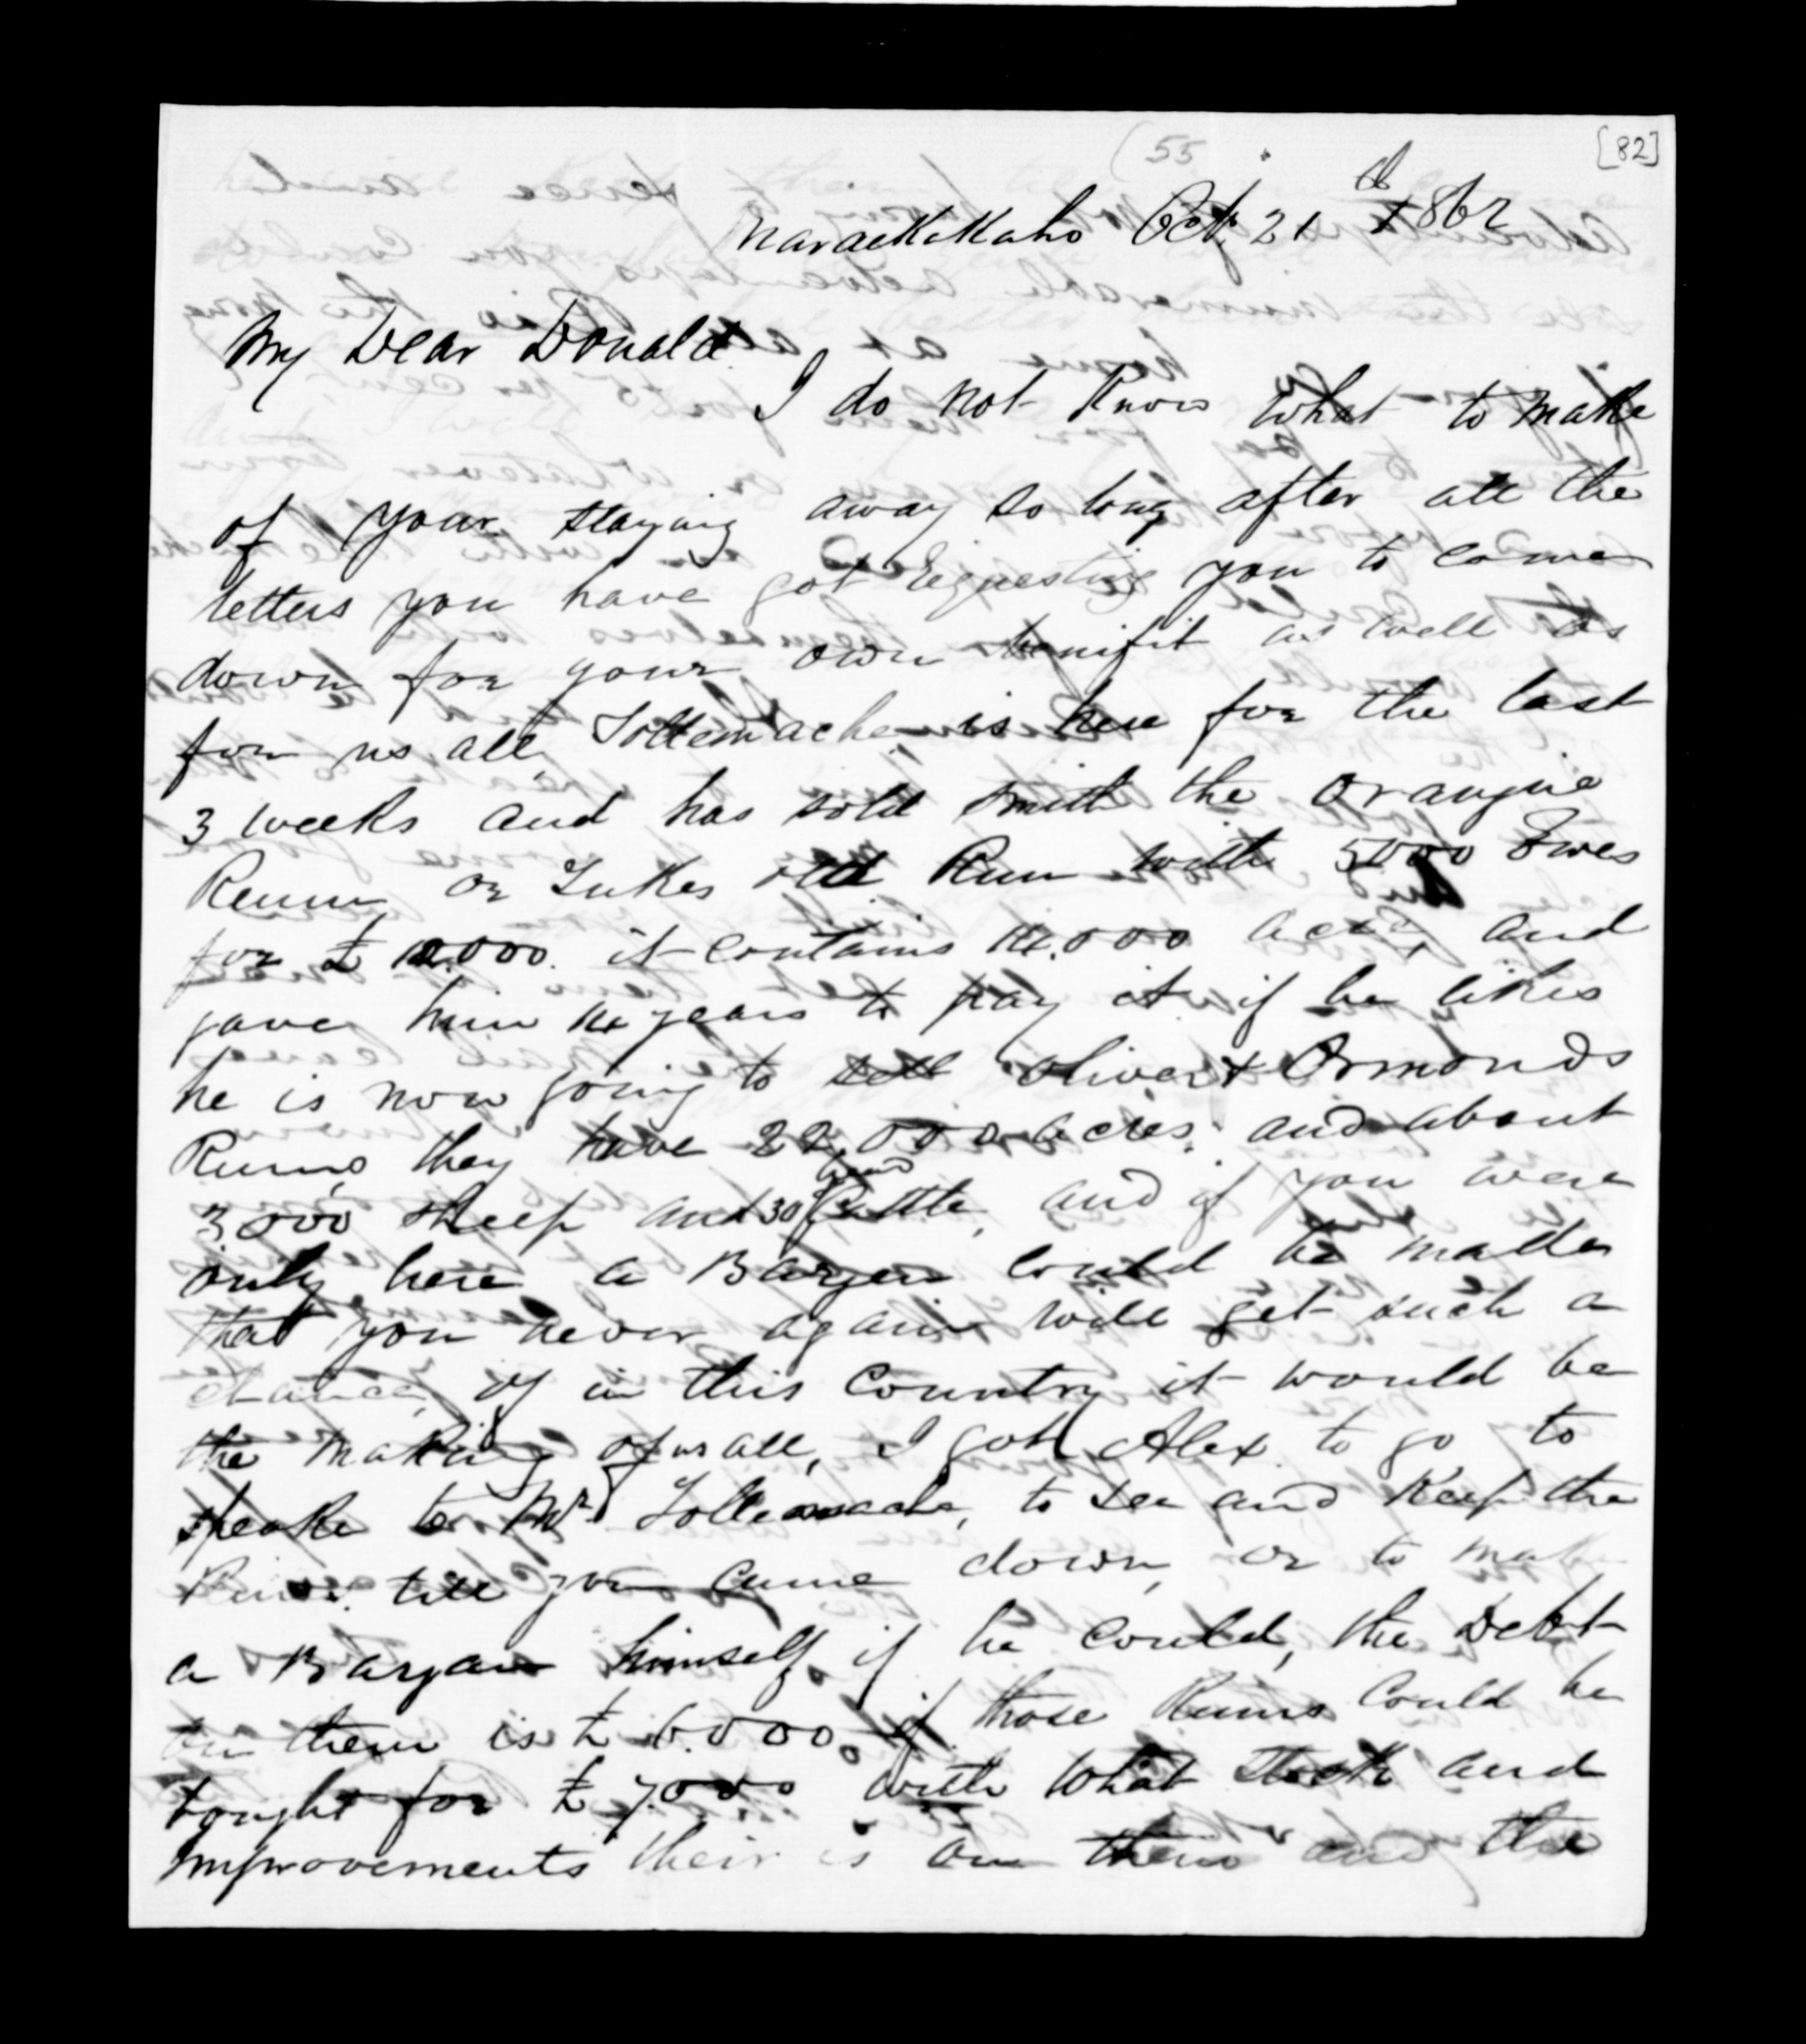 (55
[82]
Maraekakaho Oct. 21 st 1862
My Dear Donald
I do not know what to make
of your staying away so long after all the
letters you have got requesting you to come
down for your own benifit as well as
for us all, Tollemache, is here for the last
3 weeks and has sold Smith the
Runn, or Lukes old Run with 5000 Ewes
for £ it contains acrs, and
gave him years to pay it if he likes
he is now going to sell Oliver & Ormonds
Runs, they have 22,000 acres. and about
3,000 sheep and 30 head Cattle, and if you were
only here a Bargen could be made
that you never again will get such a
chance, of in this Country it would be
the making of us all, I got Alex to go to
speake to Mr Tollemache, to see and keep the
Runs till you came down, or to make
a Bargan himself, if he could, the Debt
on them is £ 6.000, if those Runs could be
bought for £ 7.000 with what stock and
Improvements their is on them and the